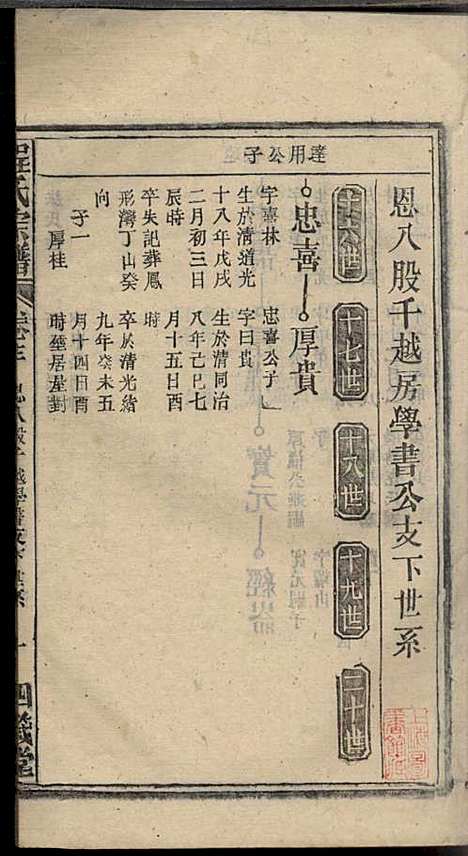 恩八股千越房學書公支下世系
十六世
十七世
十八世
十九世
二十世
達用公子
忠喜
厚貴
字嘉林
生於清道光
十八年戊戌
二月初三日
辰時
卒失記葬鳳
形灣丁山癸
向
子一
厚桂
忠喜公子
字曰貴
生於清同治
八年己巳七
月十五日酉
時
卒於清光緒
九年癸未五
月十四日酉
時塟居屋對
氏宗譜
四箴堂